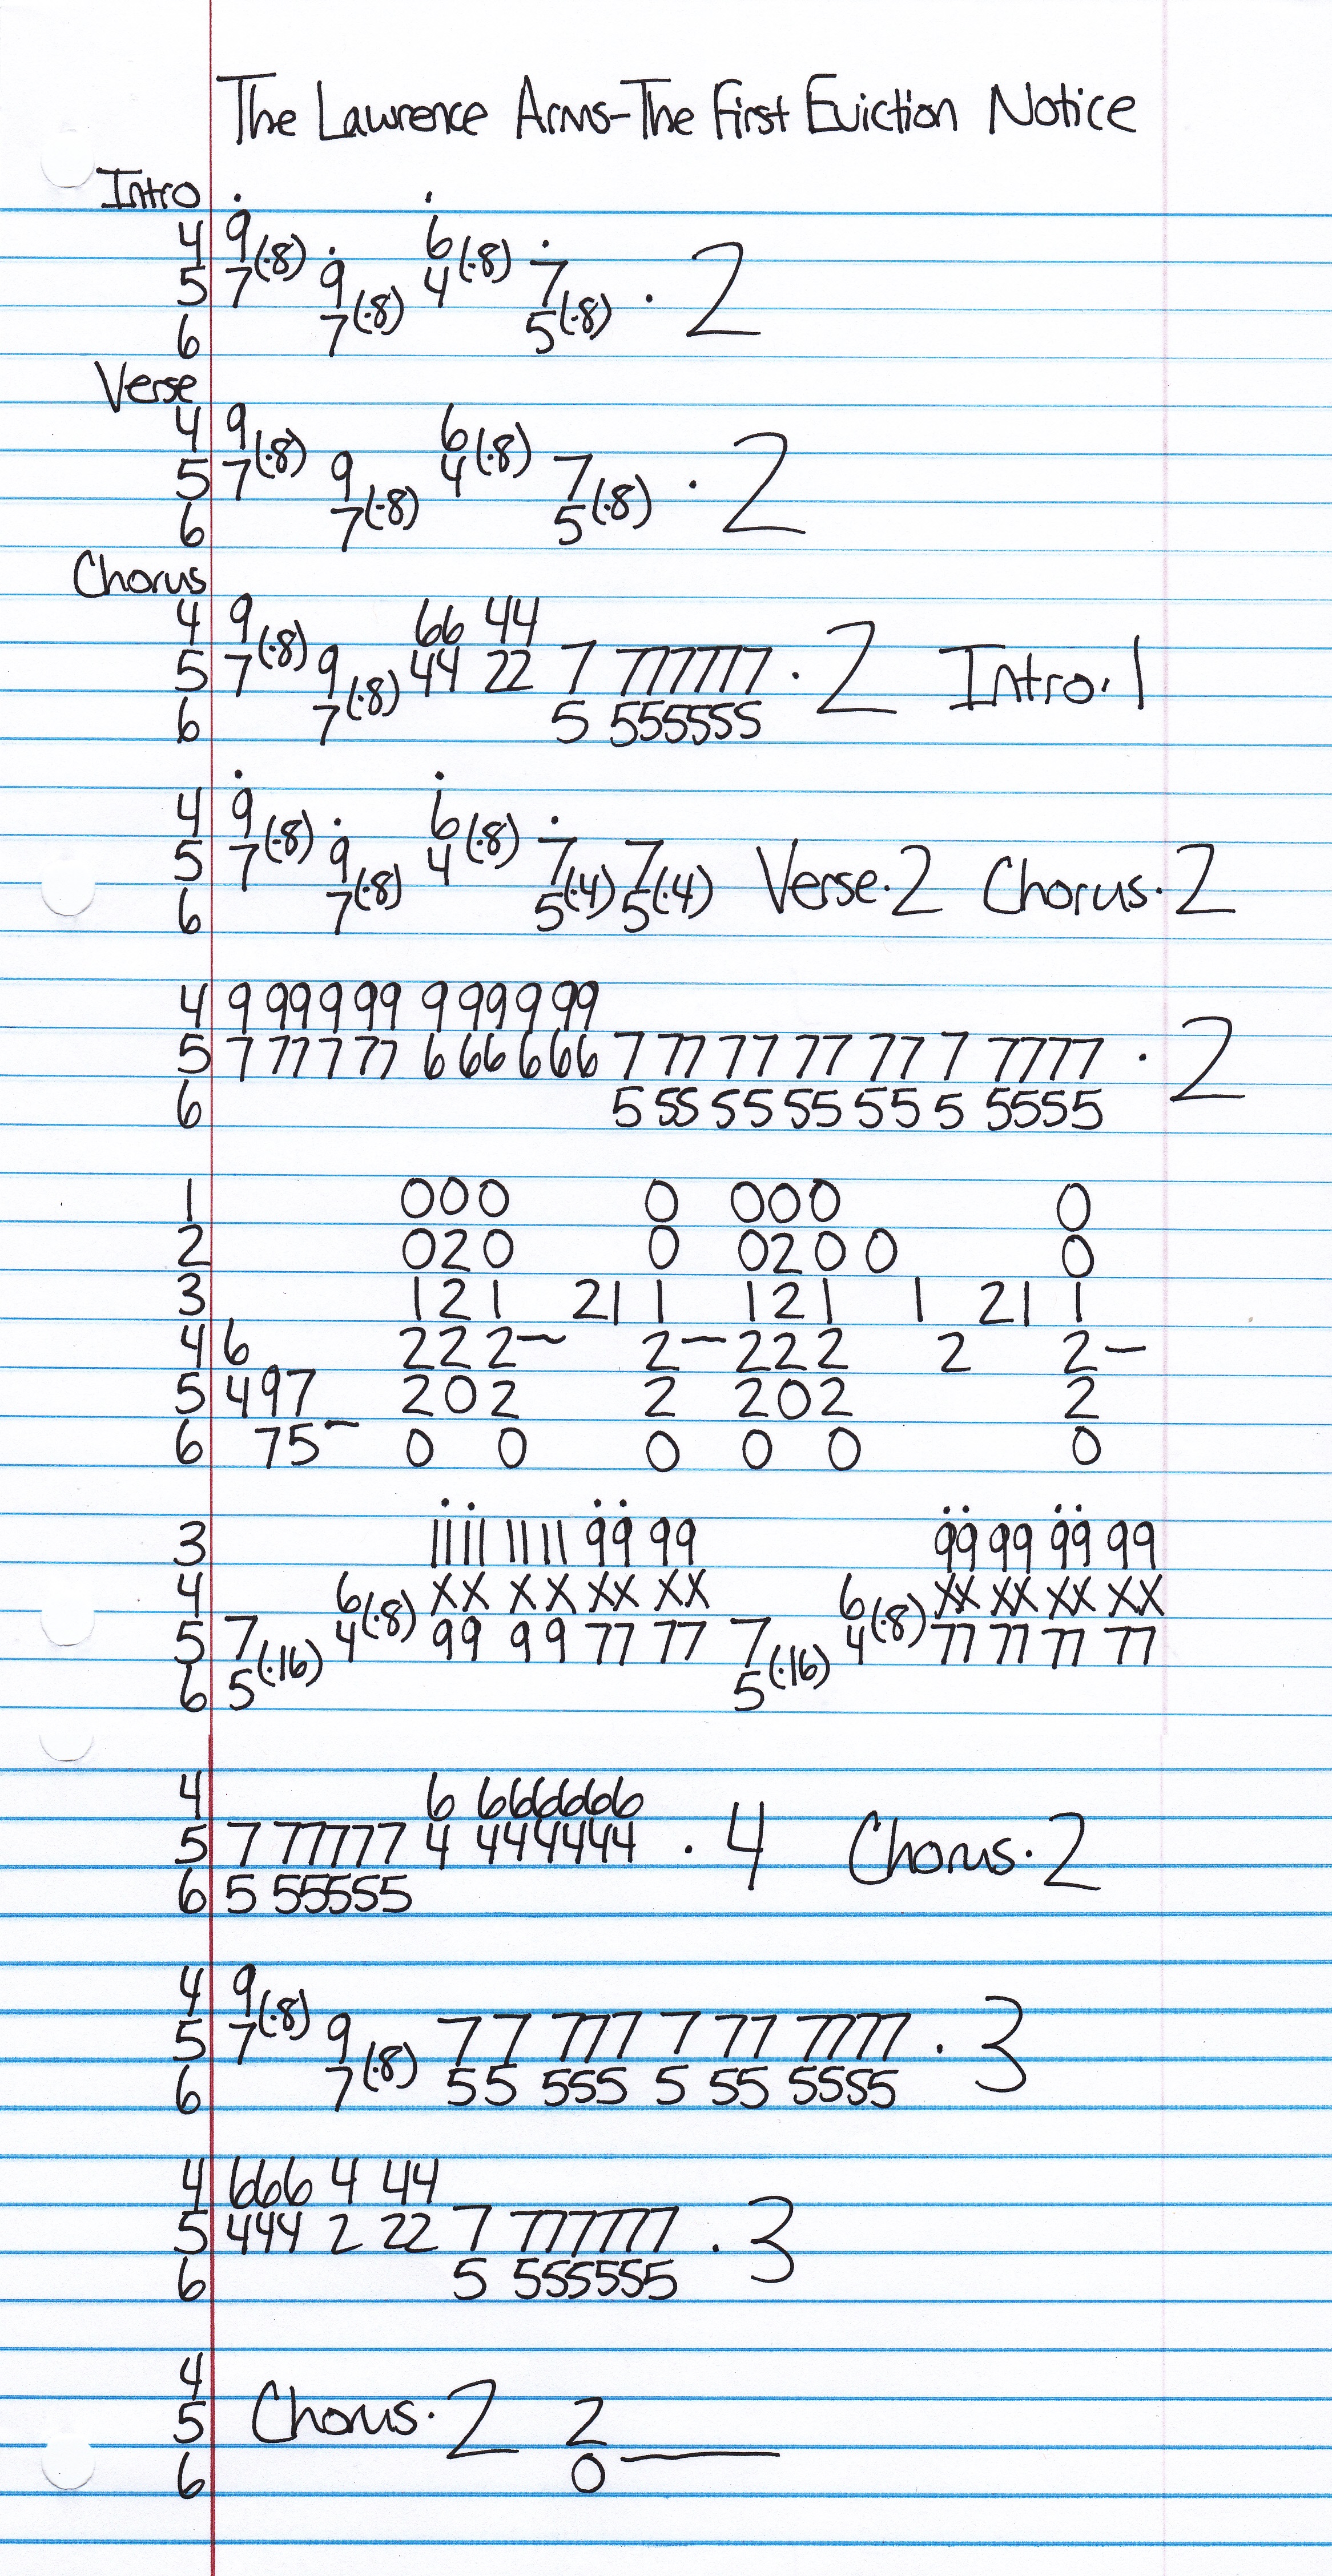 The Lawrence Arms-The First Eviction Notice
Intro
4 9(·8) 6(·8)
5 7 9(·8) 4 7(·8) · 2
6 7 5
Verse
4 9(·8) 6(·8)
5 7 9(·8) 4 7(·8) · 2
6 7 5
Chorus
4 9(·8) 66 44
5 7 9(·8) 44 22 7 777777 · 2 Intro·1
6 7 5 555555
4 9(·8) 6(·8)
5 7 9(·8) 4 7(·4) 7(·4) Verse·2 Chorus·2
6 7 5 5
4 9 99 9 99 9 99 9 99
5 7 77 7 77 6 66 6 66 7 77 77 77 77 7 7777 · 2
6 5 55 55 55 55 5 5555
1 000 0 000 0
2 020 0 020 0 0
3 121 21 1 121 1 21 1
4 6 222— 2—222 2 2—
5 497 202 2 202 2
6 75— 0 0 0 0 0 0
3 11 11 11 11 99 99 99 99 99 99
4 6(·8) XX XX XX XX 6(·8) XX XX XX XX
5 7(·16) 4 99 99 77 77 7(·16) 4 77 77 77 77
6 5 5
4 6 666666
5 7 77777 4 444444 · 4 Chorus·2
6 5 55555
4 9(·8)
5 7 9(·8) 77 777 7 77 7777 · 3
6 7 55 555 5 55 5555
4 666 4 44
5 444 2 22 7 777777 · 3
6 5 555555
4
5 Chorus·2 2
6 0—